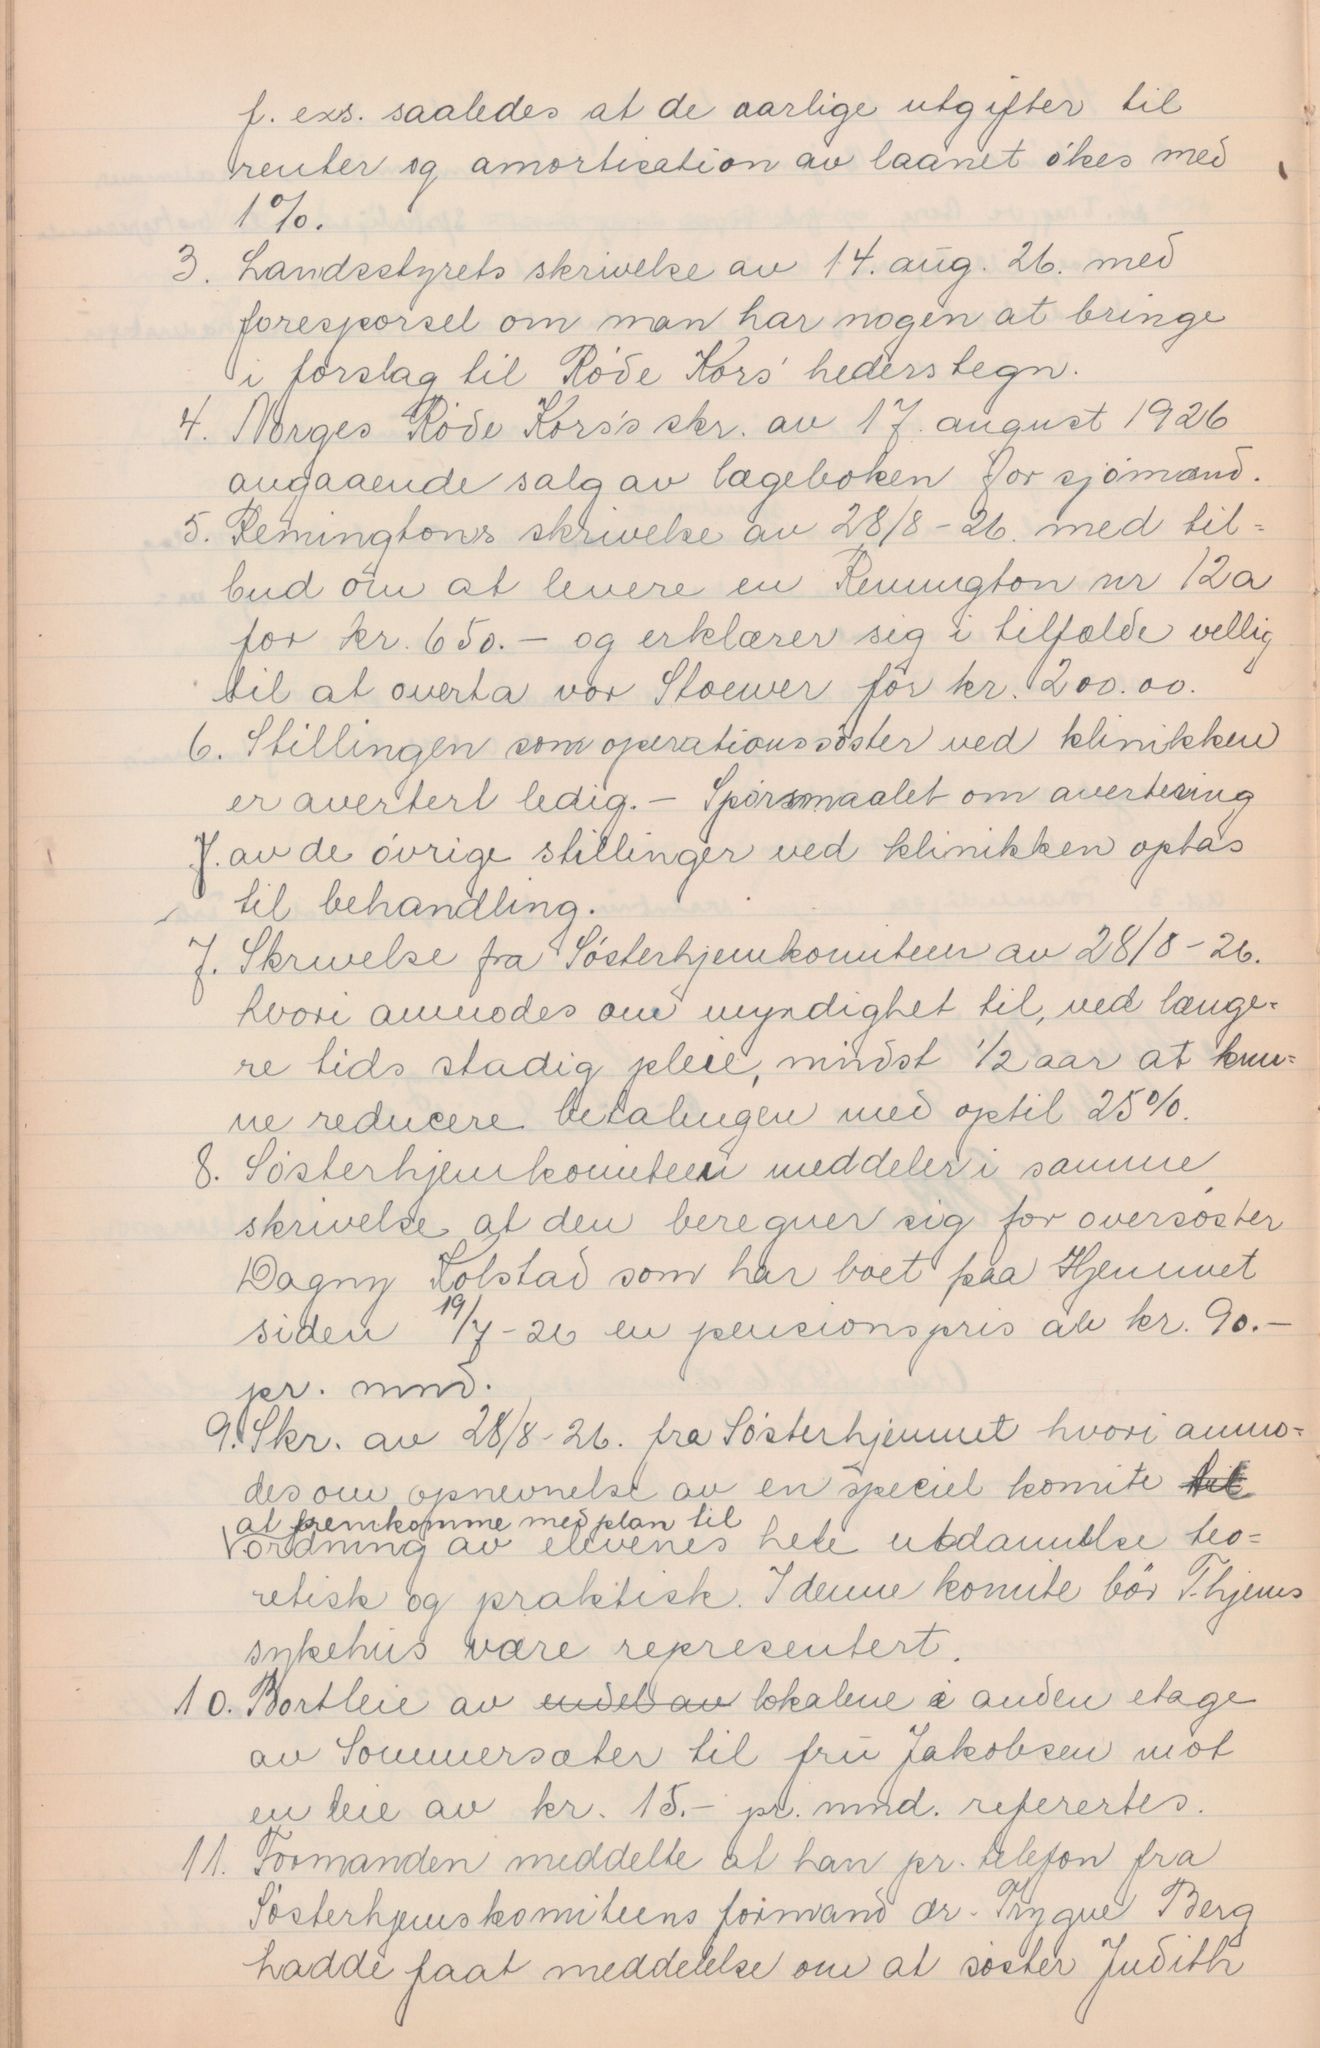 f. exs. saaledes at de aarlige utgifter til
renter og amortisation av laanet økes med
1%.
3. Landsstyrets skrivelse av 14. aug. 26. med
forespørsel om man har nogen at bringe
i forslag til Røde Kors' hederstegn.
4. Norges Røde Kors's skr. av 17. august 1926
angaaende salg av lægeboken for sjømænd.
5. Remingtons skrivelse av 28/8-26. med til=
bud om at levere en Remington nr 12a
for kr. 650.- og erklærer sig i tilfælde villig
til at overta vor Stoewer for kr. 200.00.
6. Stillingen som operationssøster ved klinikken
er avertert ledig. - Spørsmaalet om avertering
7. av de øvrige stillinger ved klinikken optas
til behandling.
7. Skrivelse fra Søsterhjemkomiteen av 28/8-26.
hvori anmodes om myndighet til, ved længe=
re tids stadig pleie, mindst 1/2 aar at kun=
ne reducere betalingen med optil 25%.
8. Søsterhjemkomiteen meddeler i samme
skrivelse at den beregner sig for oversøster
Dagny Kolstad som har boet paa Hjemmet
siden 19/7-26 en pensionspris av kr. 90.-
pr. mnd.
9. Skr. av 28/8-26. fra Søsterhjemmet hvori anmo=
des om opnevnelse av en speciel komite til
at fremkomme med plan til
ordning av elevenes hele utdannelse teo=
retisk og praktisk. I denne komite bør T.hjems
sykehus være representert.
10. Bortleie av endel av lokalene i anden etage
av Sommersæter til fru Jakobsen mot
en leie av kr. 15.- pr. mnd. refertes.
11. Formanden meddelte at han pr. telefon fra
Søsterhjemskomiteens formand dr. Trygve Berg
hadde faat meddelelse om at søster Judith